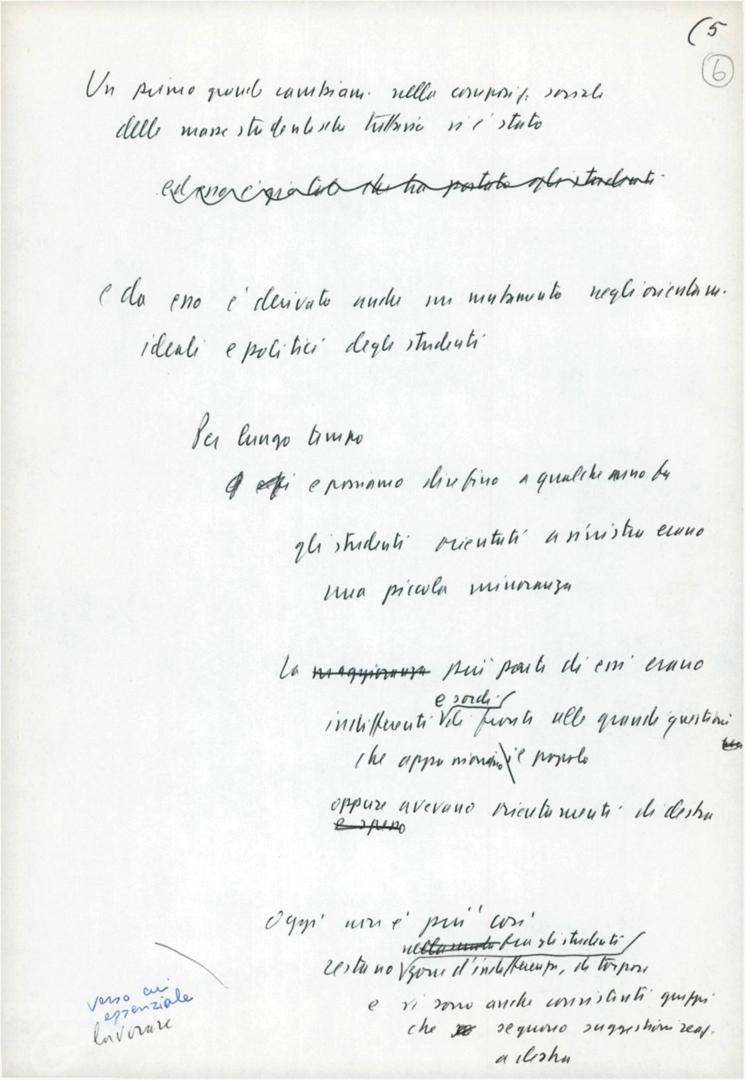 (5
6
Un primo grande cambiam. nella composiz. sociale
delle masse studentesche tuttavia vi è stato
che ha portato gli studenti
e da esso è derivato anche un mutamento negli orientam.
ideali e politici degli studenti
Per lungo tempo
e possiamo dire fino a qualche anno fa
gli studenti orientati a sinistra erano
una piccola minoranza
La maggioranza più parte di essi erano
e sordi
indifferenti di fronte alle grandi questioni
che appassionano il popolo
oppure avevano orientamenti di destra
e spesso
Oggi non è più così
fra gli studenti
restano zone d'indifferenza, di torpore
e vi sono anche consistenti gruppi
che seguono suggestioni reaz.
a destra
verso cui
essenziale
lavorare